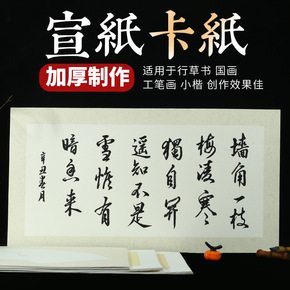 宣紙卡紙
加厚制作
适用于行草书 国画
工笔画 小楷 创作效果佳
墙角一枝
梅凌寒
獨自開
遥知不是
雪惟有
暗香来
辛丑春月